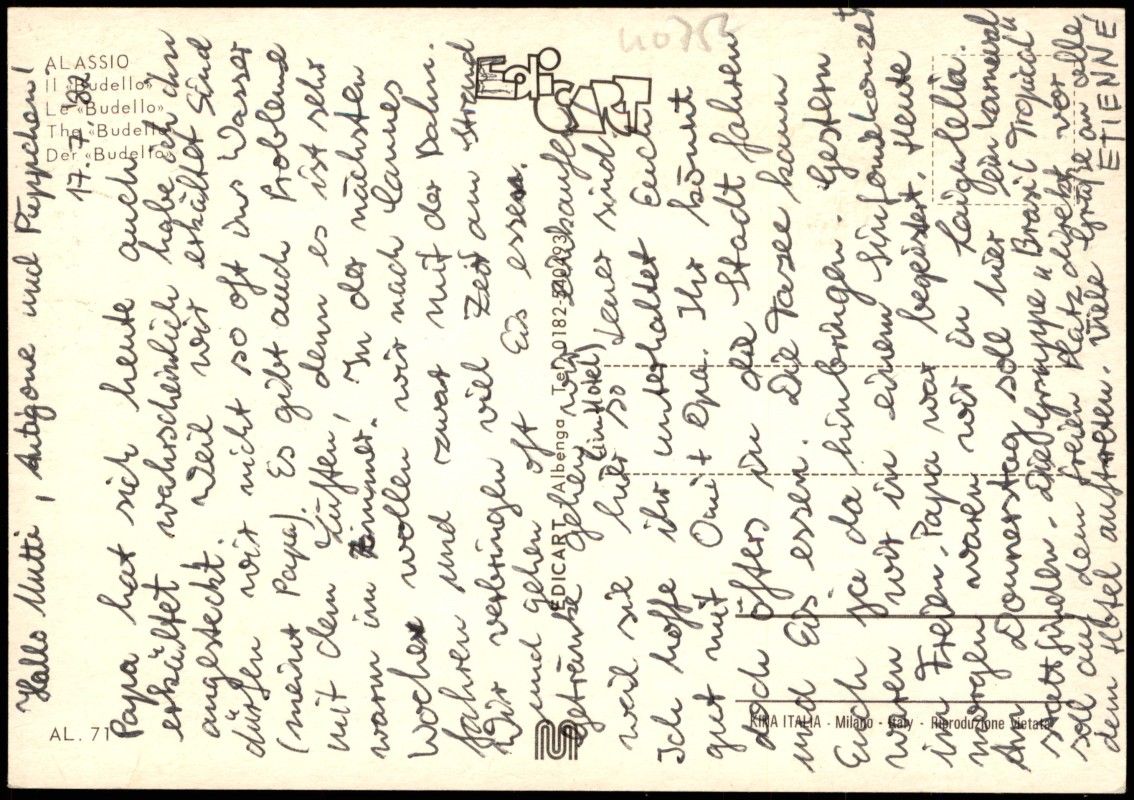 ALASSIO
Il «Budello»
Le «Budello»
The «Budello»
Der «Budello»
AL. 71
EDICART Albenga Tel. 0182-540293
KINA ITALIA - Milano - Italy - Riproduzione vietata
40754
Hallo Mutti, Antigone und Püppchen!
17.7.82
Papa hat sich heute auch
erkältet wahrscheinlich habe ich ihn
angesteckt. Weil wir erkältet sind
dürfen wir nicht so oft ins Wasser
(meint Papa). Es gibt auch Probleme
mit dem Lüften, denn es ist sehr
warm im Zimmer. In der nächsten
Woche wollen wir nach Cannes
fahren und zwar mit der Bahn.
Wir verbringen viel Zeit am Strand
und gehen oft Eis essen.
Getränke gehen wir kaufen
(im Hotel)
weil sie hier so teuer sind.
Ich hoffe ihr unterhaltet Euch
gut mit Omi + Opa. Ihr könnt
doch öfters in die Stadt fahren
und Eis essen. Die Tasse kann
Euch ja da hinbringen. Gestern
waren wir in einem Sinfoniekonzert
im Freien. Papa war begeistert. Heute
morgen waren wir in Laigulelia.
Am Donnerstag soll hier ein Karneval
stattfinden. Die Gruppe "Brasil Tropical"
soll auf dem freien Platz direkt vor
dem Hotel auftreten. Viele Grüße an alle
ETIENNE